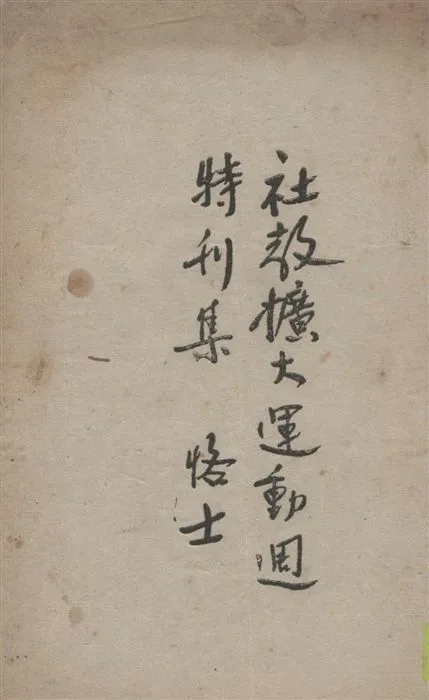 社教擴大運動週
特刊集 恪士